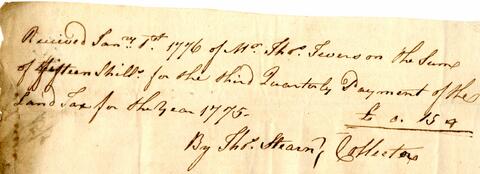 Received Jany. 1st. 1776 of Mr. Thos. Iverson the Sum
of fifteen Shills. for the third Quarterly Payment of the
Land Tax for the Year 1775
£ 0. 15
By Thos. Stearn, Collector